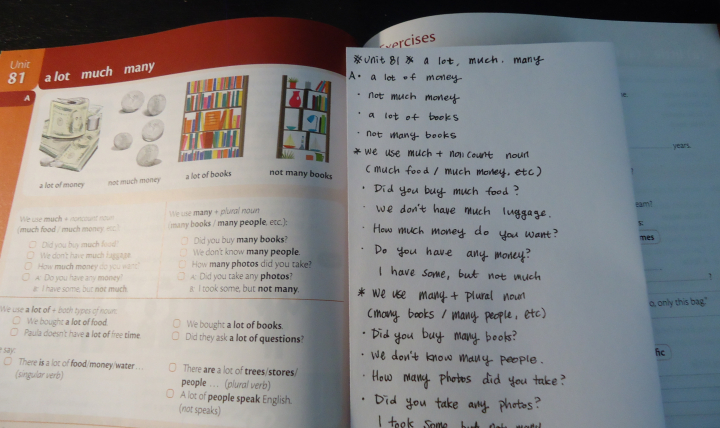 Unit
81
a lot much many
A
a lot of money
not much money
a lot of books
not many books
We use much + noncount noun
(much food / much money, etc.):
Did you buy much food?
We don't have much luggage.
How much money do you want?
A: Do you have any money?
B: I have some, but not much.
We use many + plural noun
(many books / many people, etc.):
Did you buy many books?
We don't know many people.
How many photos did you take?
A: Did you take any photos?
B: I took some, but not many.
We use a lot of + both types of noun:
We bought a lot of food.
Paula doesn't have a lot of free time.
We bought a lot of books.
Did they ask a lot of questions?
say:
There is a lot of food/money/water...
(singular verb)
There are a lot of trees/stores/
people ... (plural verb)
A lot of people speak English.
(not speaks)
Exercises
* Unit 81 * a lot, much. many
A. a lot of money
· not much money
· a lot of books
· not many books
* We use much + noncount noun
(much food / much money. etc)
· Did you buy much food?
· We don't have much luggage.
· How much money do you want?
· Do you have any money?
I have some, but not much
* We use many + plural noun
(many books / many people, etc)
· Did you buy many books?
· We don't know many people.
· How many photos did you take?
· Did you take any photos?
I took some but not many
years.
o, only this bag."